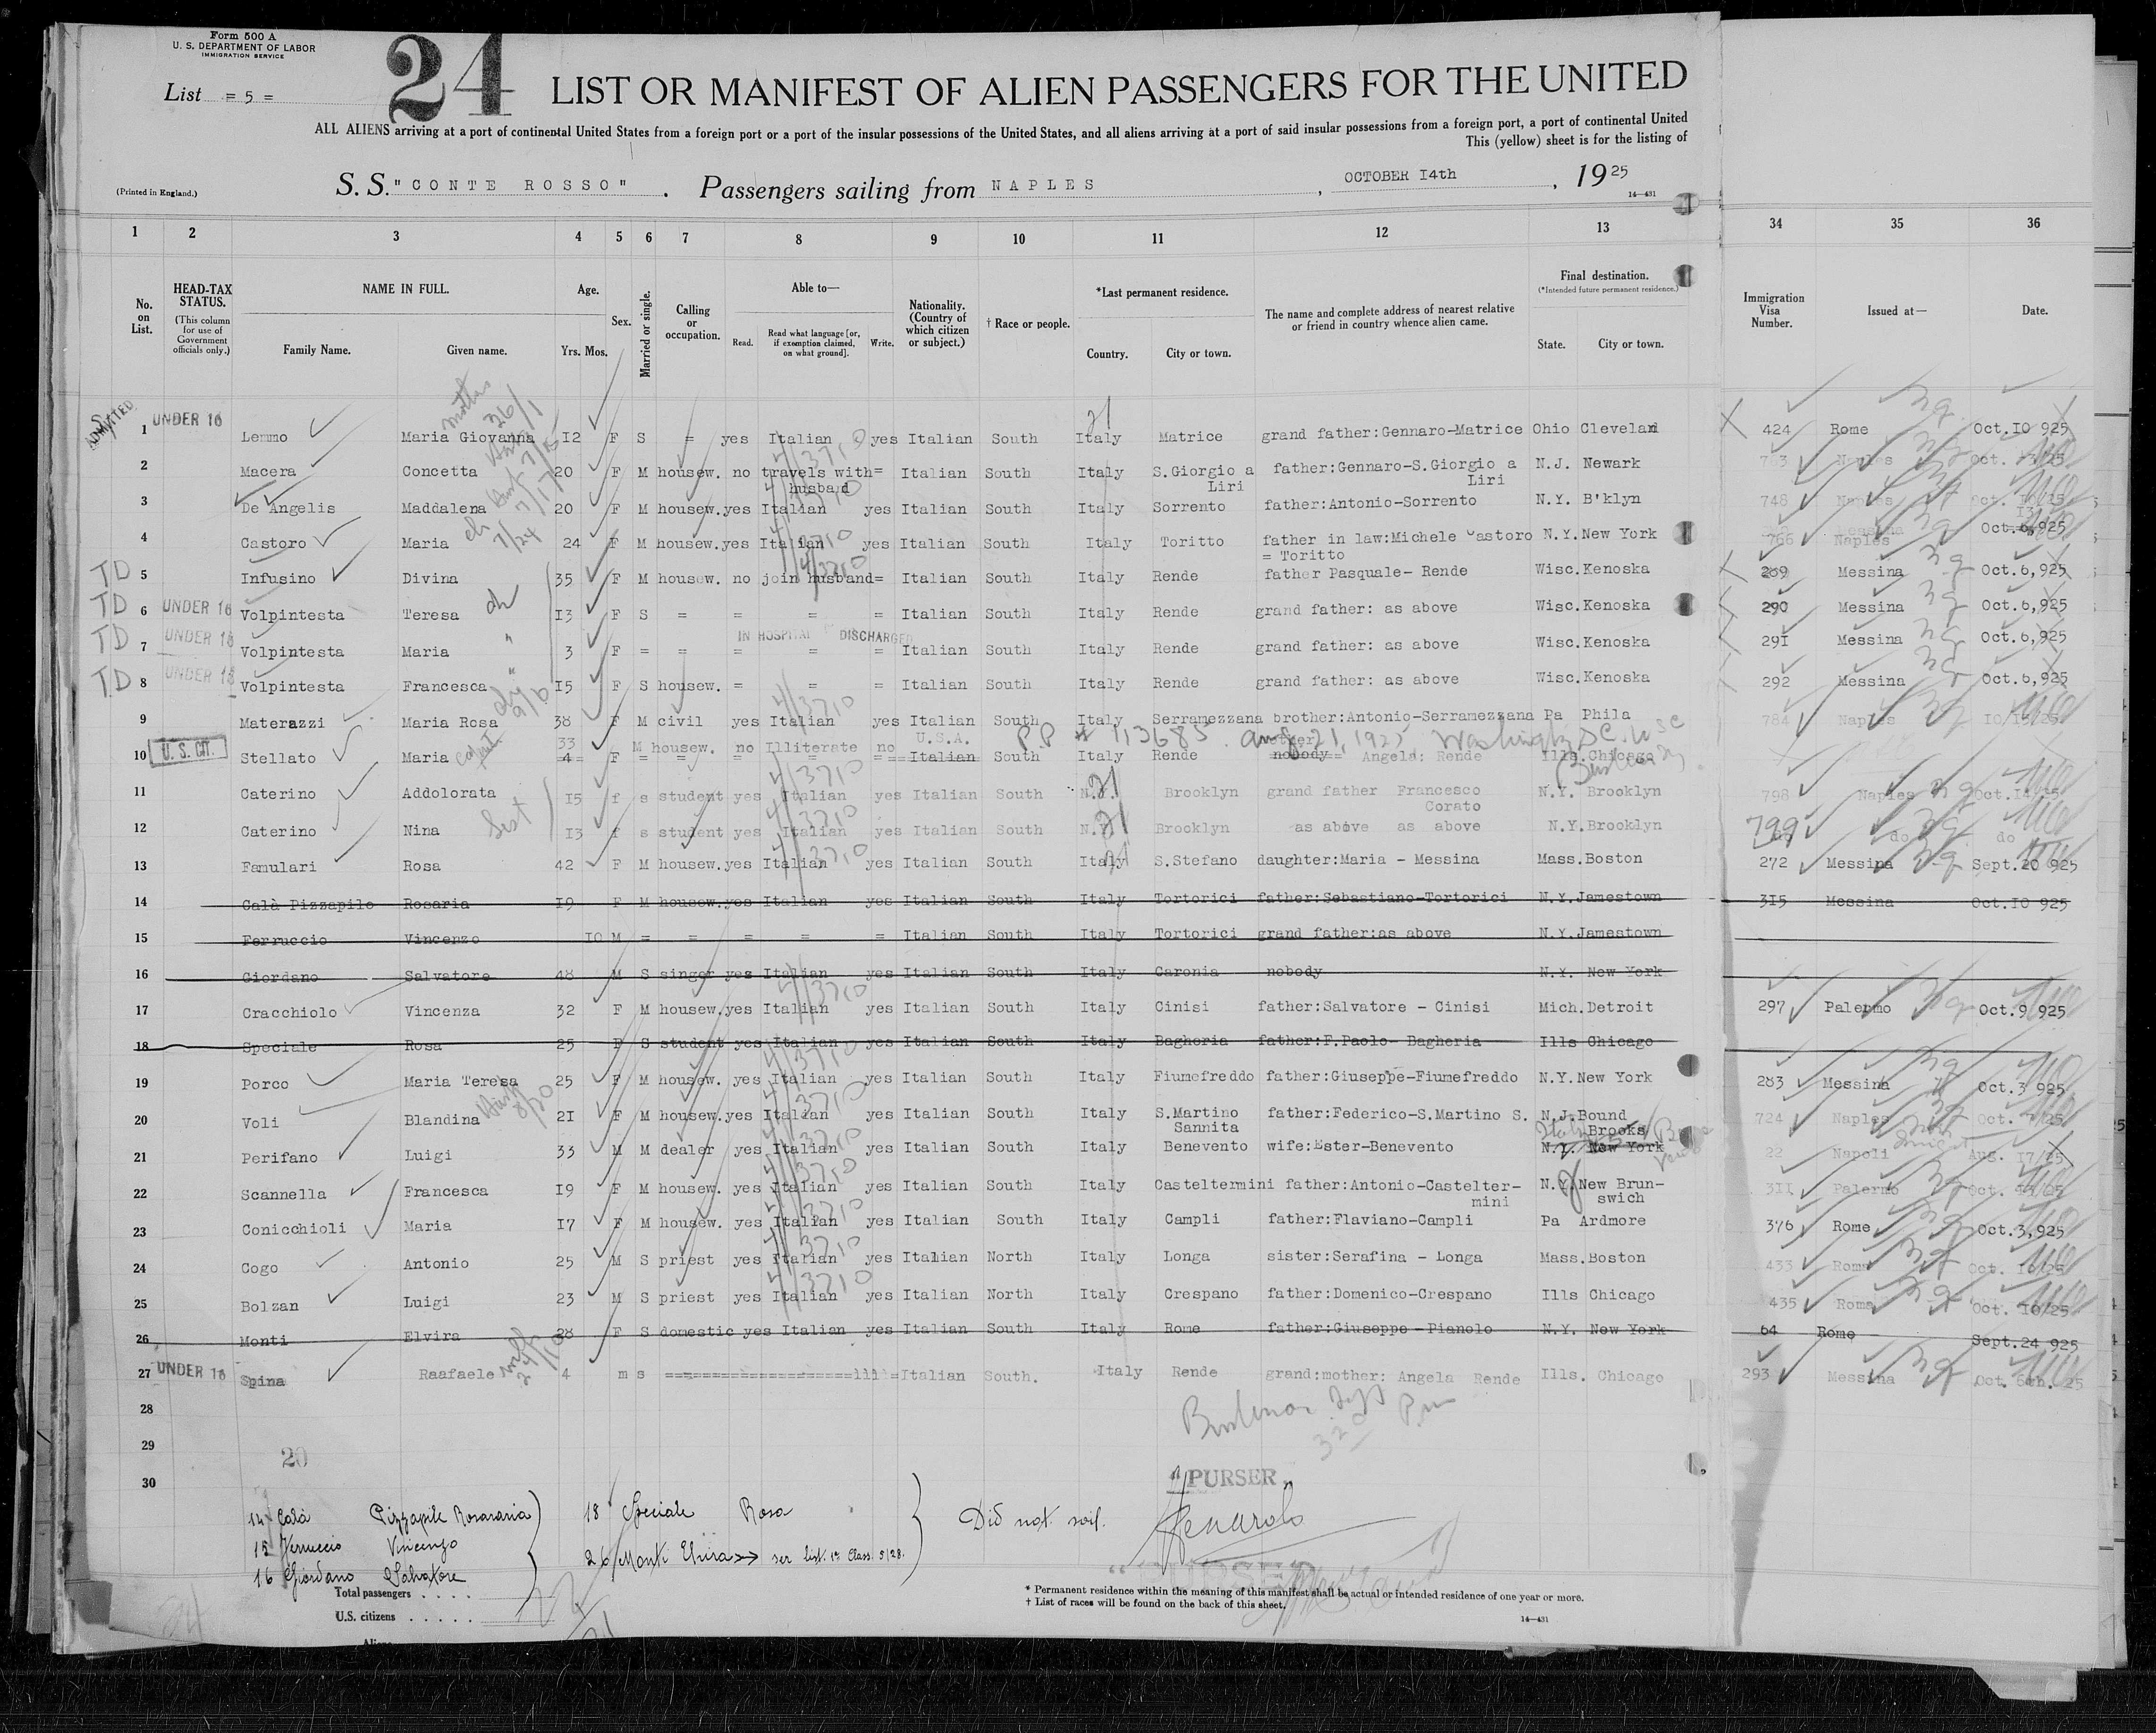 Form 500 A
U. S. DEPARTMENT OF LABOR
IMMIGRATION SERVICE
24
List = 5 =
LIST OR MANIFEST OF ALIEN PASSENGERS FOR THE UNITED
ALL ALIENS arriving at a port of continental United States from a foreign port or a port of the insular possessions of the United States, and all aliens arriving at a port of said insular possessions from a foreign port, a port of continental United
This (yellow) sheet is for the listing of
(Printed in England.)
S. S. "CONTE ROSSO" . Passengers sailing from NAPLES , OCTOBER I4th , 1925
14—431
1 2 3 4 5 6 7 8 9 10 11 12 13 34 35 36
No. on List.
HEAD-TAX STATUS. (This column for use of Government officials only.)
NAME IN FULL. Family Name. Given name.
Age. Yrs. Mos.
Sex.
Married or single.
Calling or occupation.
Able to— Read. Read what language [or, if exemption claimed, on what ground]. Write.
Nationality. (Country of which citizen or subject.)
† Race or people.
*Last permanent residence. Country. City or town.
The name and complete address of nearest relative or friend in country whence alien came.
Final destination. (*Intended future permanent residence.) State. City or town.
Immigration Visa Number.
Issued at—
Date.
ADMITTED 1 UNDER 16 Lemmo Maria Giovanna I2 F S = yes Italian yes Italian South Italy Matrice grand father:Gennaro-Matrice Ohio Cleveland 424 Rome Oct.IO 925
2 Macera Concetta 20 F M housew. no travels with= Italian South Italy S.Giorgio a father:Gennaro-S.Giorgio a N.J. Newark Naples
husband Liri Liri
3 De Angelis Maddalena 20 F M housew.yes Italian yes Italian South Italy Sorrento father:Antonio-Sorrento N.Y. B'klyn 748 Naples
4 Castoro Maria 24 F M housew.yes Italian yes Italian South Italy Toritto father in law:Michele Castoro N.Y.New York 766 Naples Oct.6,925
= Toritto
TD 5 Infusino Divina 35 F M housew. no join husband= Italian South Italy Rende father Pasquale- Rende Wisc.Kenoska 289 Messina Oct.6,925
TD 6 UNDER 16 Volpintesta Teresa I3 F S = = = = Italian South Italy Rende grand father: as above Wisc.Kenoska 290 Messina Oct.6,925
IN HOSPITAL DISCHARGED
TD 7 UNDER 16 Volpintesta Maria 3 F = = = = = Italian South Italy Rende grand father: as above Wisc.Kenoska 29I Messina Oct.6,925
TD 8 UNDER 16 Volpintesta Francesca I5 F S housew. = = = Italian South Italy Rende grand father: as above Wisc.Kenoska 292 Messina Oct.6,925
9 Materazzi Maria Rosa 38 F M civil yes Italian yes Italian South Italy Serramezzana brother:Antonio-Serramezzana Pa Phila 784 Naples
33 M housew. no Illiterate no U.S.A. P.P # 113685 Aug 21, 1925 Washington DC
10 U. S. CIT. Stellato Maria 4 F = = = = = Italian South Italy Rende nobody Angela: Rende Ills.Chicago
11 Caterino Addolorata I5 f s student yes Italian yes Italian South N.Y. Brooklyn grand father Francesco N.Y. Brooklyn 798 Naples Oct.I4/25
Corato
12 Caterino Nina I3 f s student yes Italian yes Italian South N.Y. Brooklyn as above as above N.Y.Brooklyn 799 do do
13 Famulari Rosa 42 F M housew.yes Italian yes Italian South Italy S.Stefano daughter:Maria - Messina Mass.Boston 272 Messina Sept.20 925
14 Calà Pizzapilo Rosaria I9 F M housew.yes Italian yes Italian South Italy Tortorici father:Sebastiano-Tortorici N.Y.Jamestown 3I5 Messina Oct.IO 925
15 Ferruccio Vincenzo IO M = = = = = Italian South Italy Tortorici grand father:as above N.Y.Jamestown
16 Giordano Salvatore 48 M S singer yes Italian yes Italian South Italy Caronia nobody N.Y. New York
17 Cracchiolo Vincenza 32 F M housew.yes Italian yes Italian South Italy Cinisi father:Salvatore - Cinisi Mich.Detroit 297 Palermo Oct.9 925
18 Speciale Rosa 25 F S student yes Italian yes Italian South Italy Bagheria father:F.Paolo- Bagheria Ills Chicago
19 Porco Maria Teresa 25 F M housew. yes Italian yes Italian South Italy Fiumefreddo father:Giuseppe-Fiumefreddo N.Y.New York 283 Messina Oct.3 925
20 Voli Blandina 2I F M housew.yes Italian yes Italian South Italy S.Martino father:Federico-S.Martino S. N.J.Bound 724 Naples
Sannita Brooks
21 Perifano Luigi 33 M M dealer yes Italian yes Italian South Italy Benevento wife:Ester-Benevento N.Y. New York 22 Napoli Aug. I7/25
22 Scannella Francesca I9 F M housew. yes Italian yes Italian South Italy Casteltermini father:Antonio-Castelter- N.Y.New Brun- 3II Palermo
mini swich
23 Conicchioli Maria I7 F M housew. yes Italian yes Italian South Italy Campli father:Flaviano-Campli Pa Ardmore 376 Rome Oct.3,925
24 Cogo Antonio 25 M S priest yes Italian yes Italian North Italy Longa sister:Serafina - Longa Mass.Boston 433 Roma
25 Bolzan Luigi 23 M S priest yes Italian yes Italian North Italy Crespano father:Domenico-Crespano Ills Chicago 435 Roma Oct. IO/25
26 Monti Elvira 28 F S domestic yes Italian yes Italian South Italy Rome father:Giuseppe-Pianolo N.Y. New York 64 Rome Sept.24 925
27 UNDER 16 Spina Raafaele 4 m s =Italian South. Italy Rende grand:mother: Angela Rende Ills. Chicago 293 Messina Oct. 6th. 25
28
29
20
30
PURSER
14 Calà Pizzapile Rosararia
15 Ferruccio Vincenzo
16 Giordano Salvatore
18 Speciale Rosa
26 Monti Elvira
Did not sail.
Total passengers . . . .
U.S. citizens . . . . .
* Permanent residence within the meaning of this manifest shall be actual or intended residence of one year or more.
† List of races will be found on the back of this sheet.
14—431